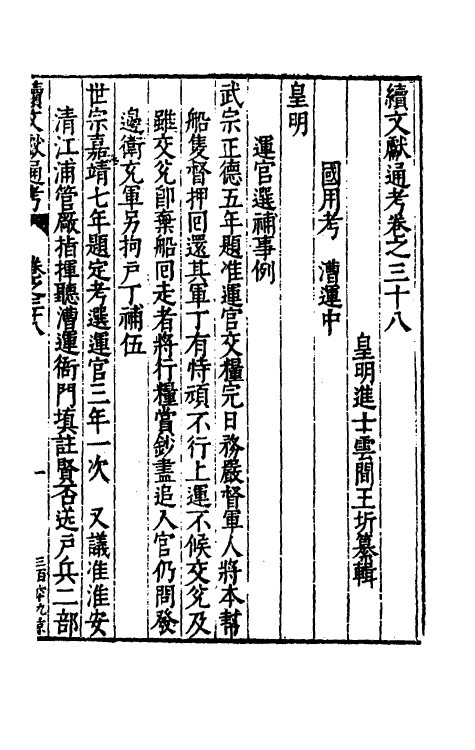 續文獻通考卷之三十八
皇明進士雲間王圻纂輯
國用考　漕運中
皇明
運官選補事例
武宗正德五年題准運官交糧完日務嚴督軍人將本幫
船隻督押囘還其軍丁有恃頑不行上運不候交兊及
雖交兊卽棄船囘走者將行糧賞鈔盡追入官仍問發
邊衛充軍另拘戶丁補伍
世宗嘉靖七年題定考選運官三年一次　又議准淮安
清江浦管厰指揮聽漕運衙門塡註賢否送戶兵二部
續文獻通考　卷之三十八　一